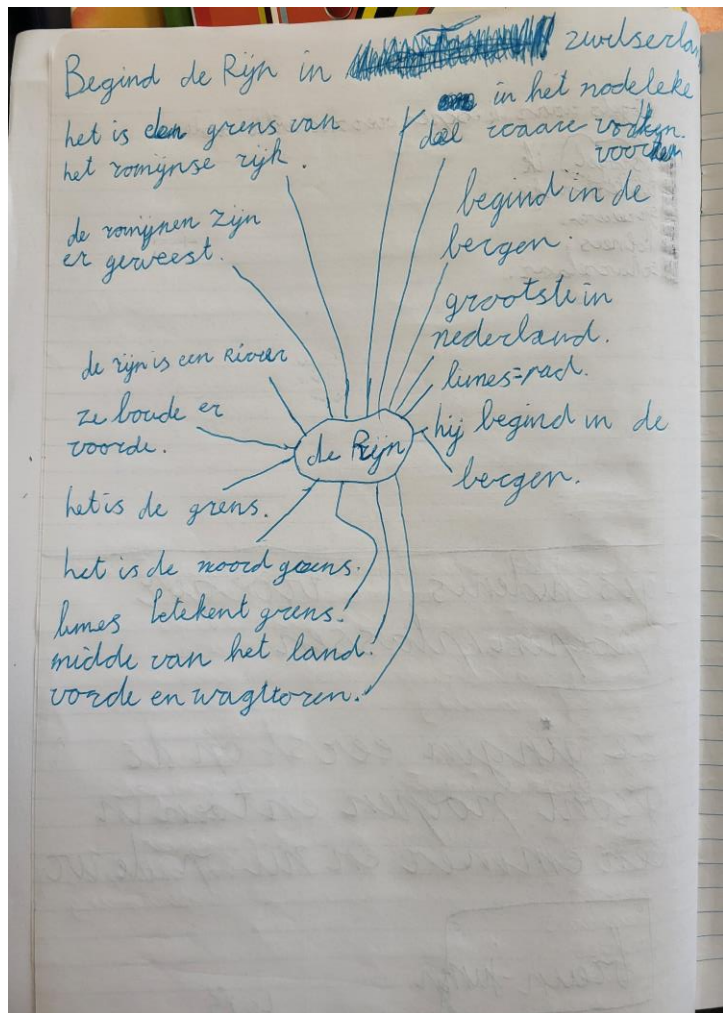 Begind de Rijn in zwitserlan
het is een grens van
het romijnse rijk.
in het nodeleke
deel waare
voorden
de romijnen zijn
er geweest.
begind in de
bergen.
grootste in
nederland.
de rijn is een Rivier
limes=pad.
ze boude er
voorde.
de Rijn
hij begind in de
bergen.
het is de grens.
het is de noord grens.
limes betekent grens.
midde van het land.
vorde en wagttoren.